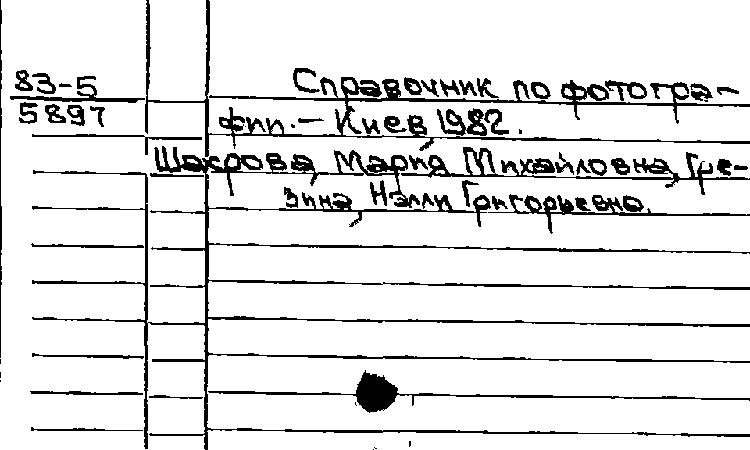 83-5
5897
Справочник по фотогра-
фии. - Киев, 1982.
Шахрова, Мария Михайловна, Гре-
зина, Нэлли Григорьевна.